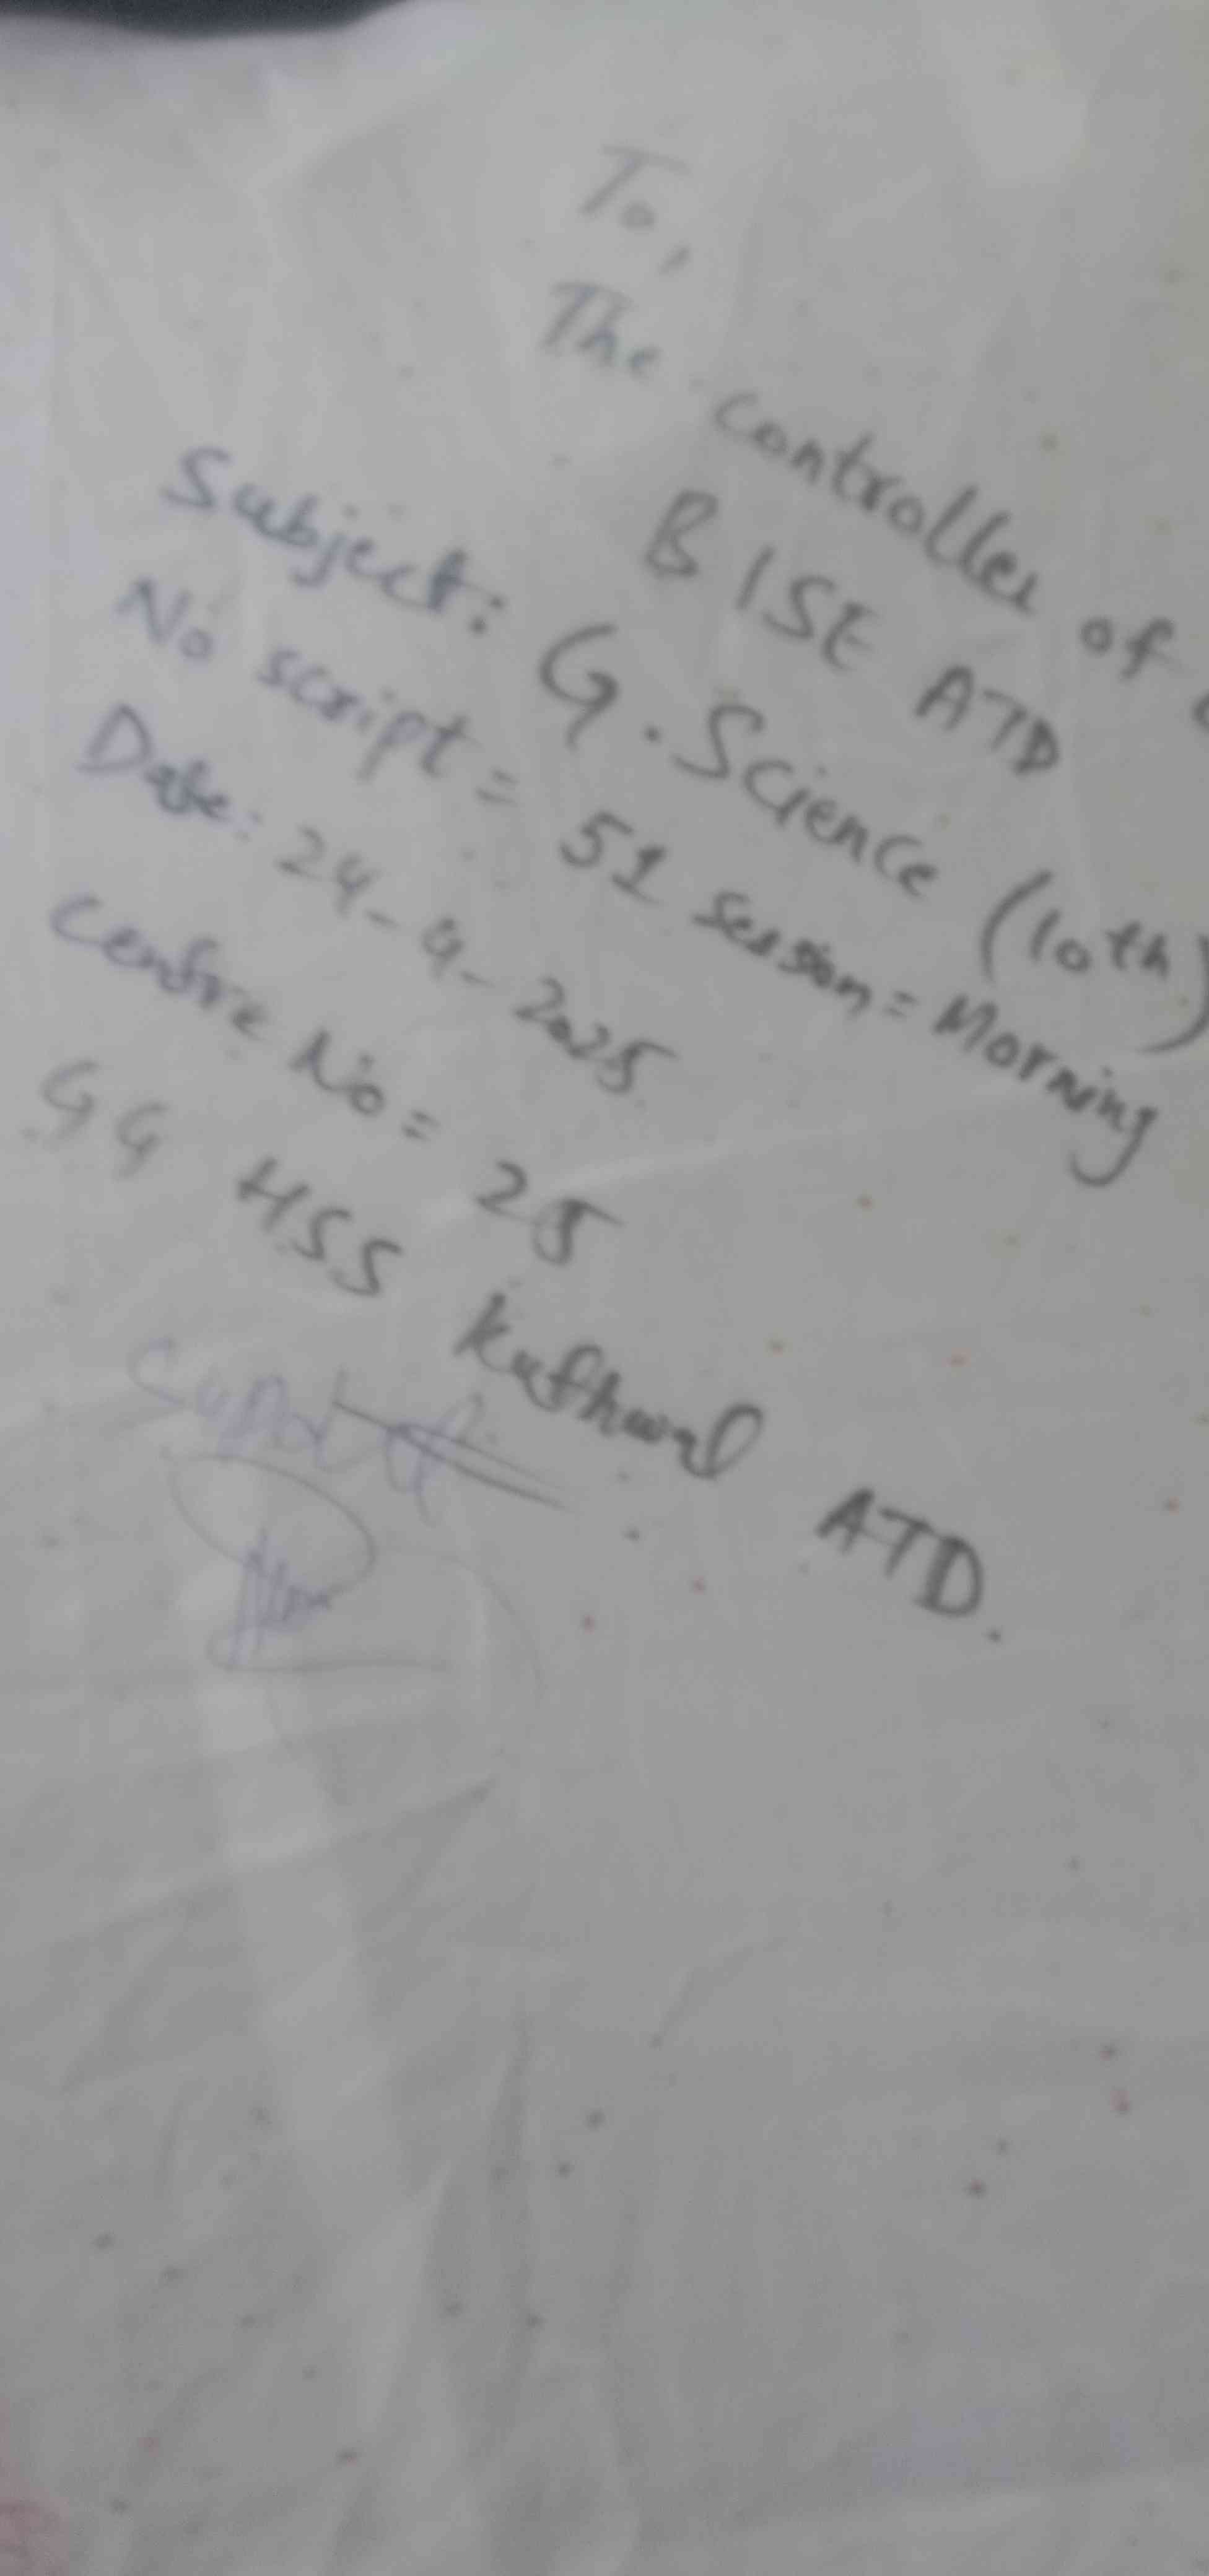 To,
The controller of
BISE ATD
Subject: G. Science (10th)
No script = 51 session = Morning
Date: 24-4-2025
Centre No = 25
GG HSS Kuthwal ATD.